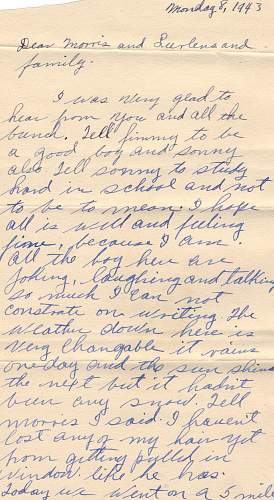 Monday 8, 1943
Dear Morris and and
family.
I was very glad to
hear from you and all the
bunch. Tell jimmy to be
a good boy and sonny
also. Tell sonny to study
hard in school and not
to be to mean. I hope
all is well and feeling
fine, because I am.
All the boy here are
joking, laughing and talking
so much I can not
constrate on writing. The
weather down here is
very changable it rains
one day and the sun shine
the next but it hadn't
been any snow. Tell
morris I said I haven't
lost any of my hair yet
from getting pulled in
window like he has.
Today we went on a 5 mile